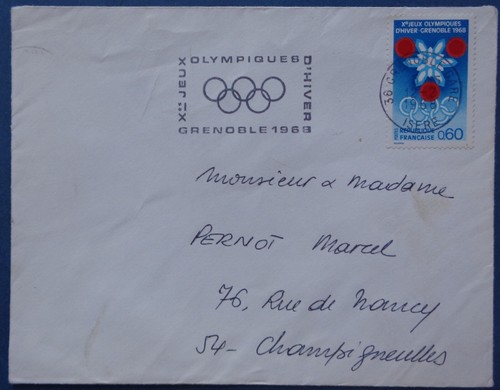 Xes JEUX OLYMPIQUES D'HIVER
GRENOBLE 1968
Xes JEUX OLYMPIQUES
D'HIVER-GRENOBLE 1968
1968
ISERE
RÉPUBLIQUE
FRANÇAISE
0,60
Monsieur & Madame
PERNOT Marcel
76, Rue de Nancy
54- Champigneulles